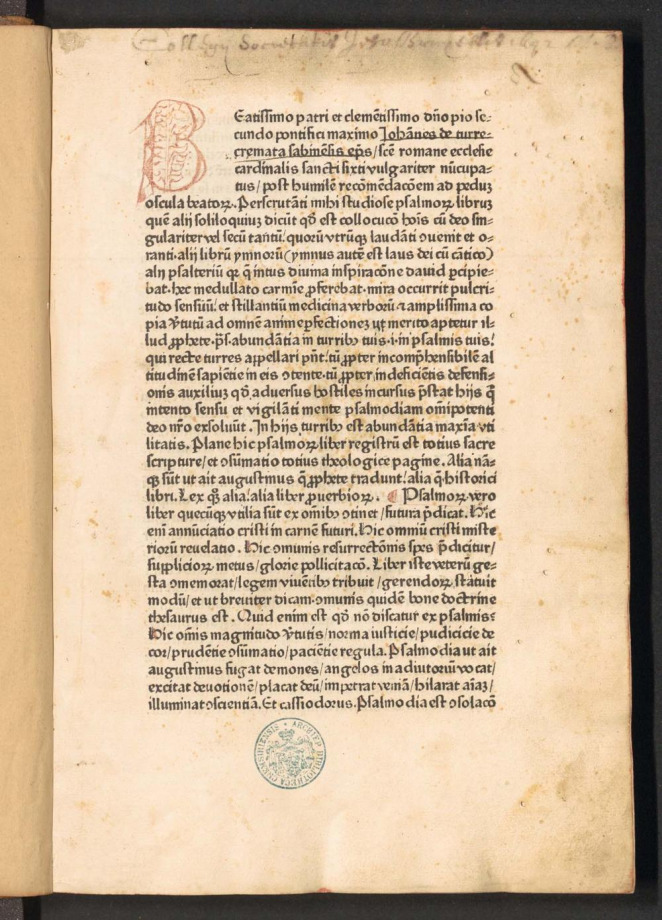 Collegii Societatis Jesu
Beatissimo patri et clemētissimo dn̄o pio se⸗
cundo pontifici maximo Iohānes de turre⸗
cremata sabinēsis ep̄s/scē romane ecclesie
cardinalis sancti sixti vulgariter nūcupa⸗
tus/post humilē recōmēdacōem ad peduꝫ
oscula beatoꝝ. Perscrutāti mihi studiose psalmoꝝ libruꝫ
quē alij soliloquiuꝫ dicūt qd̄ est collocucō hoīs cū deo sin⸗
gulariter vel secū tantū. quorū vtrūqꝫ laudāti ꝯuenit et o⸗
ranti. alij librū ymnorū (ymnus autē est laus dei cū cātico)
alij psalteriū qꝫ q̄ intus diuina inspiracōne dauid ꝑcipie⸗
bat. hec medullato carmīe ꝓferebat. mira occurrit pulcri⸗
tudo sensuū. et stillantiū medicina verborū ⁊ amplissima co
pia v̓tutū ad omnē anime ꝑfectioneꝫ vt merito aptetur il⸗
lud ꝓphete. ps̄. abundātia in turribꝫ tuis .i. in psalmis tuis.
qui recte turres appellari pn̄t. tū ꝓpter incomp̄hensibilē al
titudinē sapiētie in eis ꝯtente. tū ꝓpter indeficiētis defensi⸗
onis auxiliuꝫ qd̄ aduersus hostiles incursus p̄stat hijs q̄
intento sensu et vigilāti mente psalmodiam om̄ipotenti
deo nr̄o exsoluūt. In hijs turribꝫ est abundātia maxīa vti
litatis. Plane hic psalmoꝝ liber registrū est totius sacre
scripture/et ꝯsūmatio totius theologice pagine. Alia nā⸗
qꝫ sūt ut ait augustinus q̄ ꝓphete tradunt. alia q̄ historici
libri. Lex qꝫ alia. alia liber ꝓuerbioꝝ. ¶ Psalmoꝝ vero
liber quecūqꝫ vtilia sūt ex om̄ibꝫ ꝯtinet/futura p̄dicat. Hic
enī annūciatio cristi in carnē futuri. Hic omniū cristi miste
riorū reuelatio. Hic ꝯmunis resurrectōnis spes p̄dicitur/
suppliciorꝝ metus/glorie pollicitacō. Liber iste veterū ge⸗
sta ꝯmemorat/legem viuētibꝫ tribuit/gerendoꝝ statuit
modū/et ut breuiter dicam. ꝯmunis quidē bone doctrine
thesaurus est. Quid enim est qd̄ nō discatur ex psalmis?
Hic om̄is magnitudo v̓tutis/norma iusticie/pudicicie de
cor/prudētie ꝯsūmatio/paciētie regula. Psalmodia ut ait
augustinus fugat demones/angelos in adiutoriū vocat/
excitat deuotionē/placat deū/impetrat veniā/hilarat aīaꝫ/
illuminat ꝯscientiā. Et cassiodorus. Psalmodia est ꝯsolacō
ARCHIEP. BIBLIOTHECA